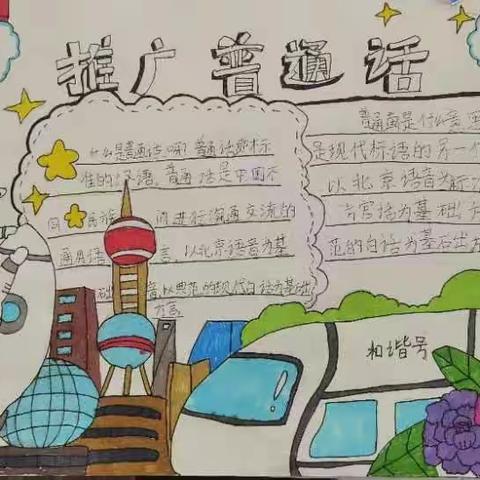 推广普通话
什么是普通话呢?普通话即标
准的汉语。普通话是中国不
同民族 间进行沟通交流的
通用语言,以北京语音为基
础 音,以典范的现代白话为基础
方言
普通画是什么意
是现代标语的另一个
以北京语音为标
方言话为基础,
范的白话为基
和谐号